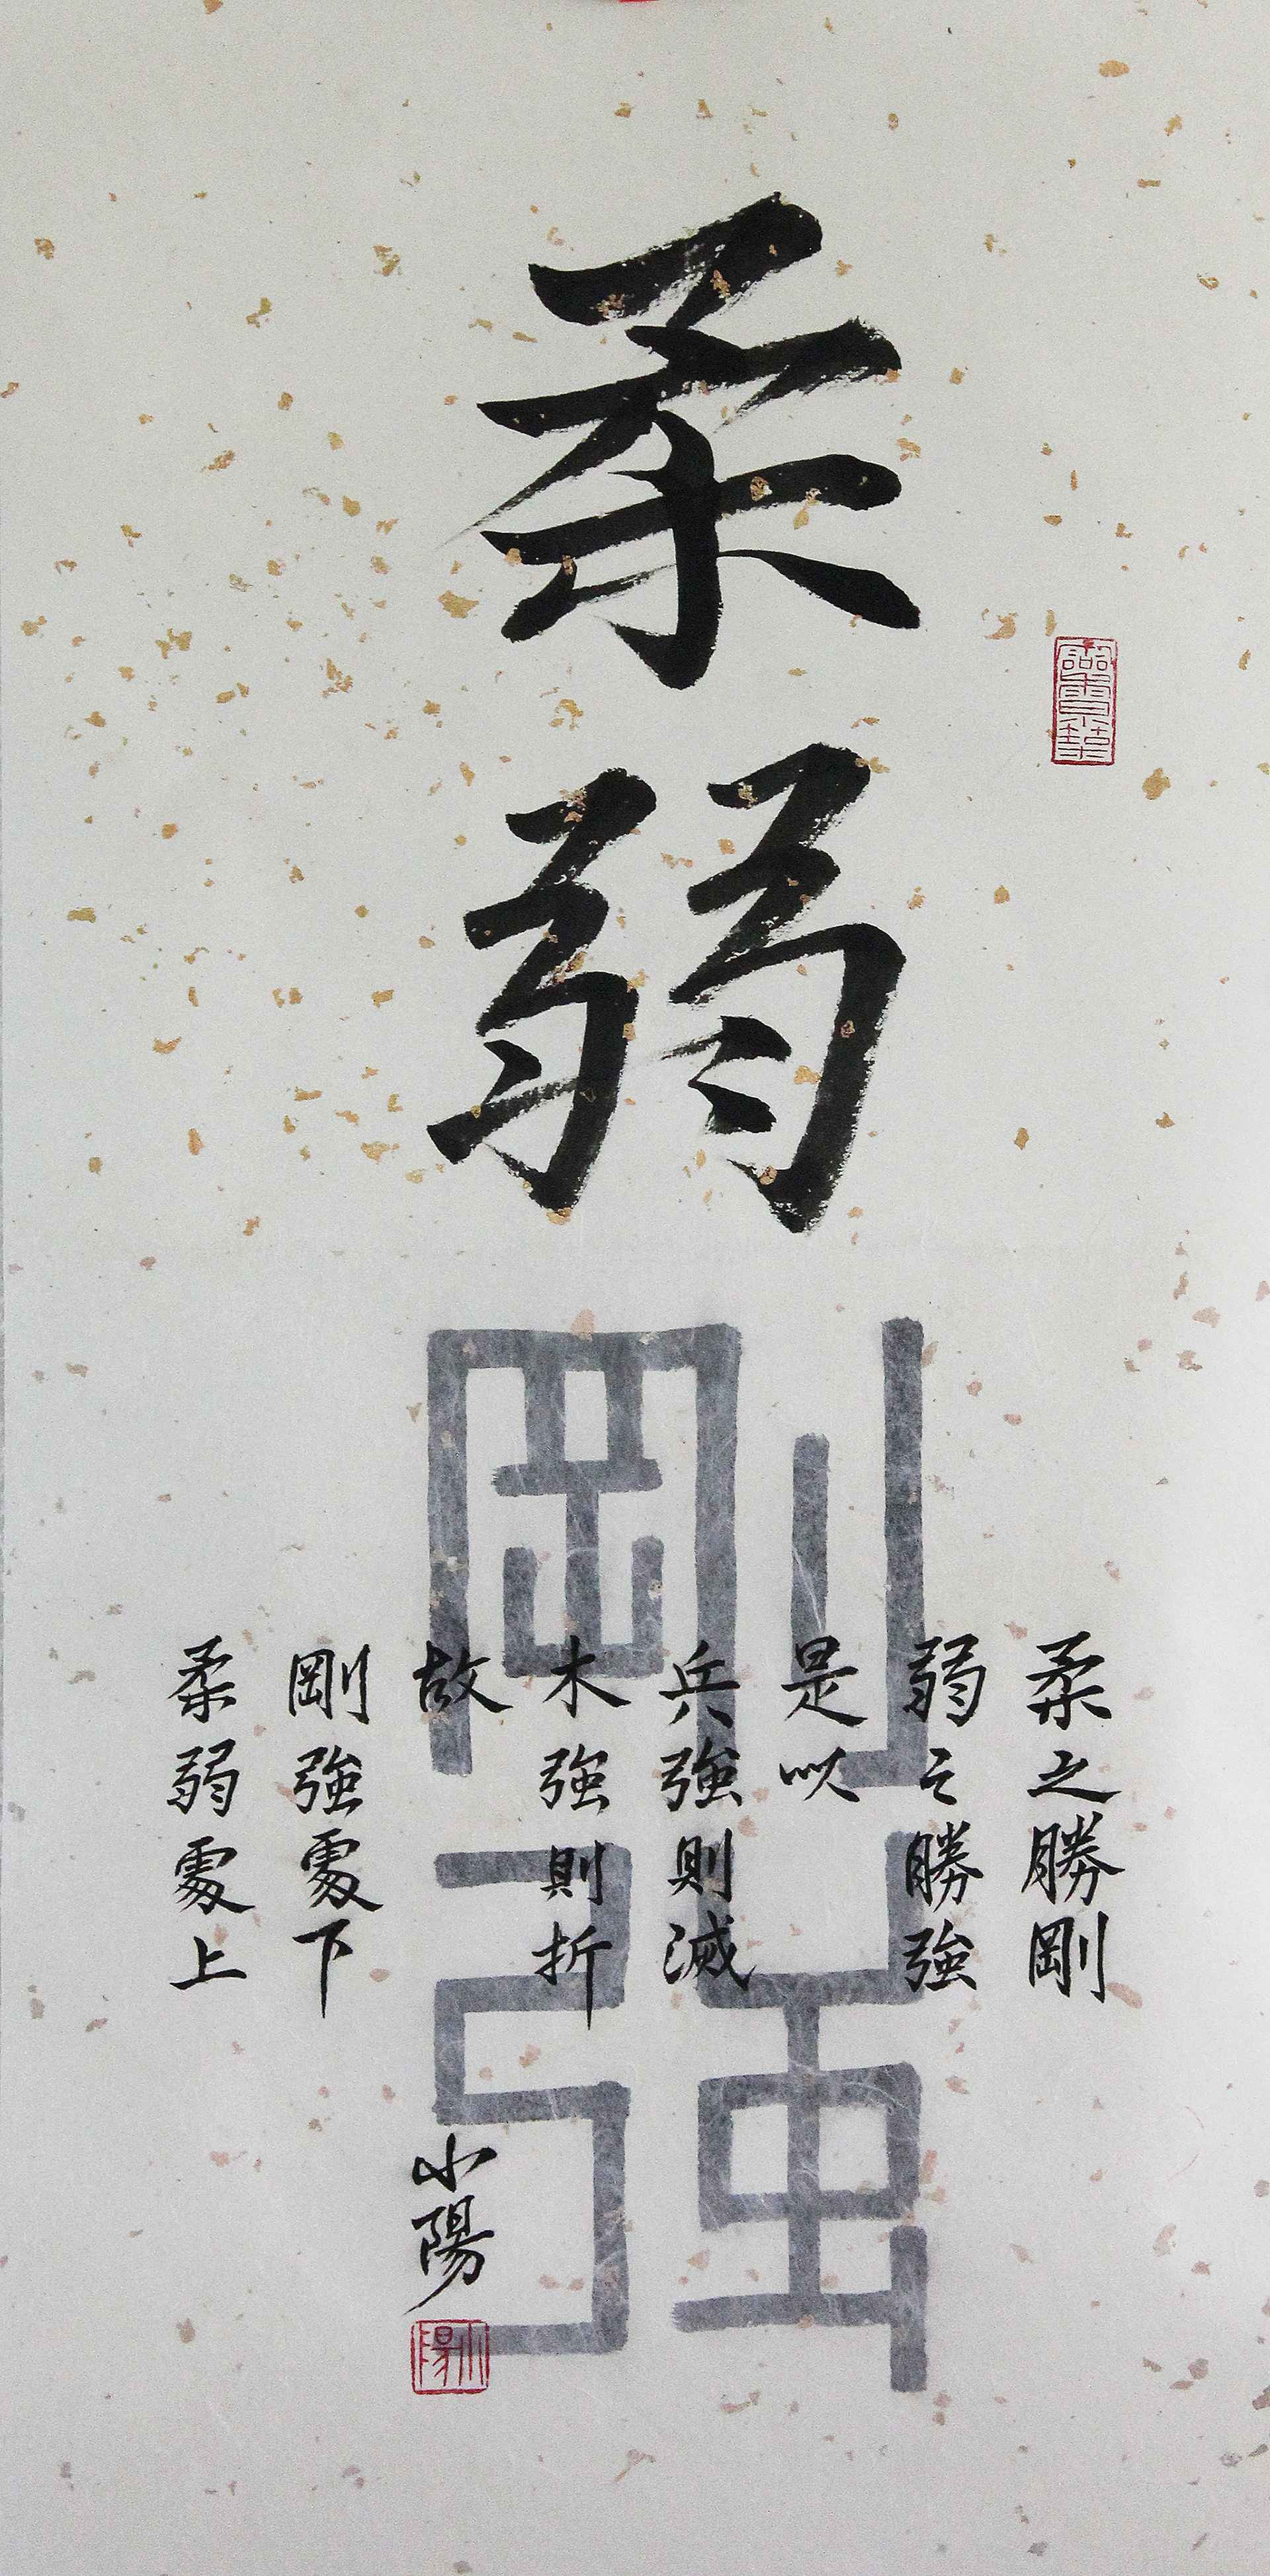 柔弱
剛強
柔之勝剛
弱之勝強
是以
兵強則滅
木強則折
故
剛強處下
柔弱處上
小陽
小陽